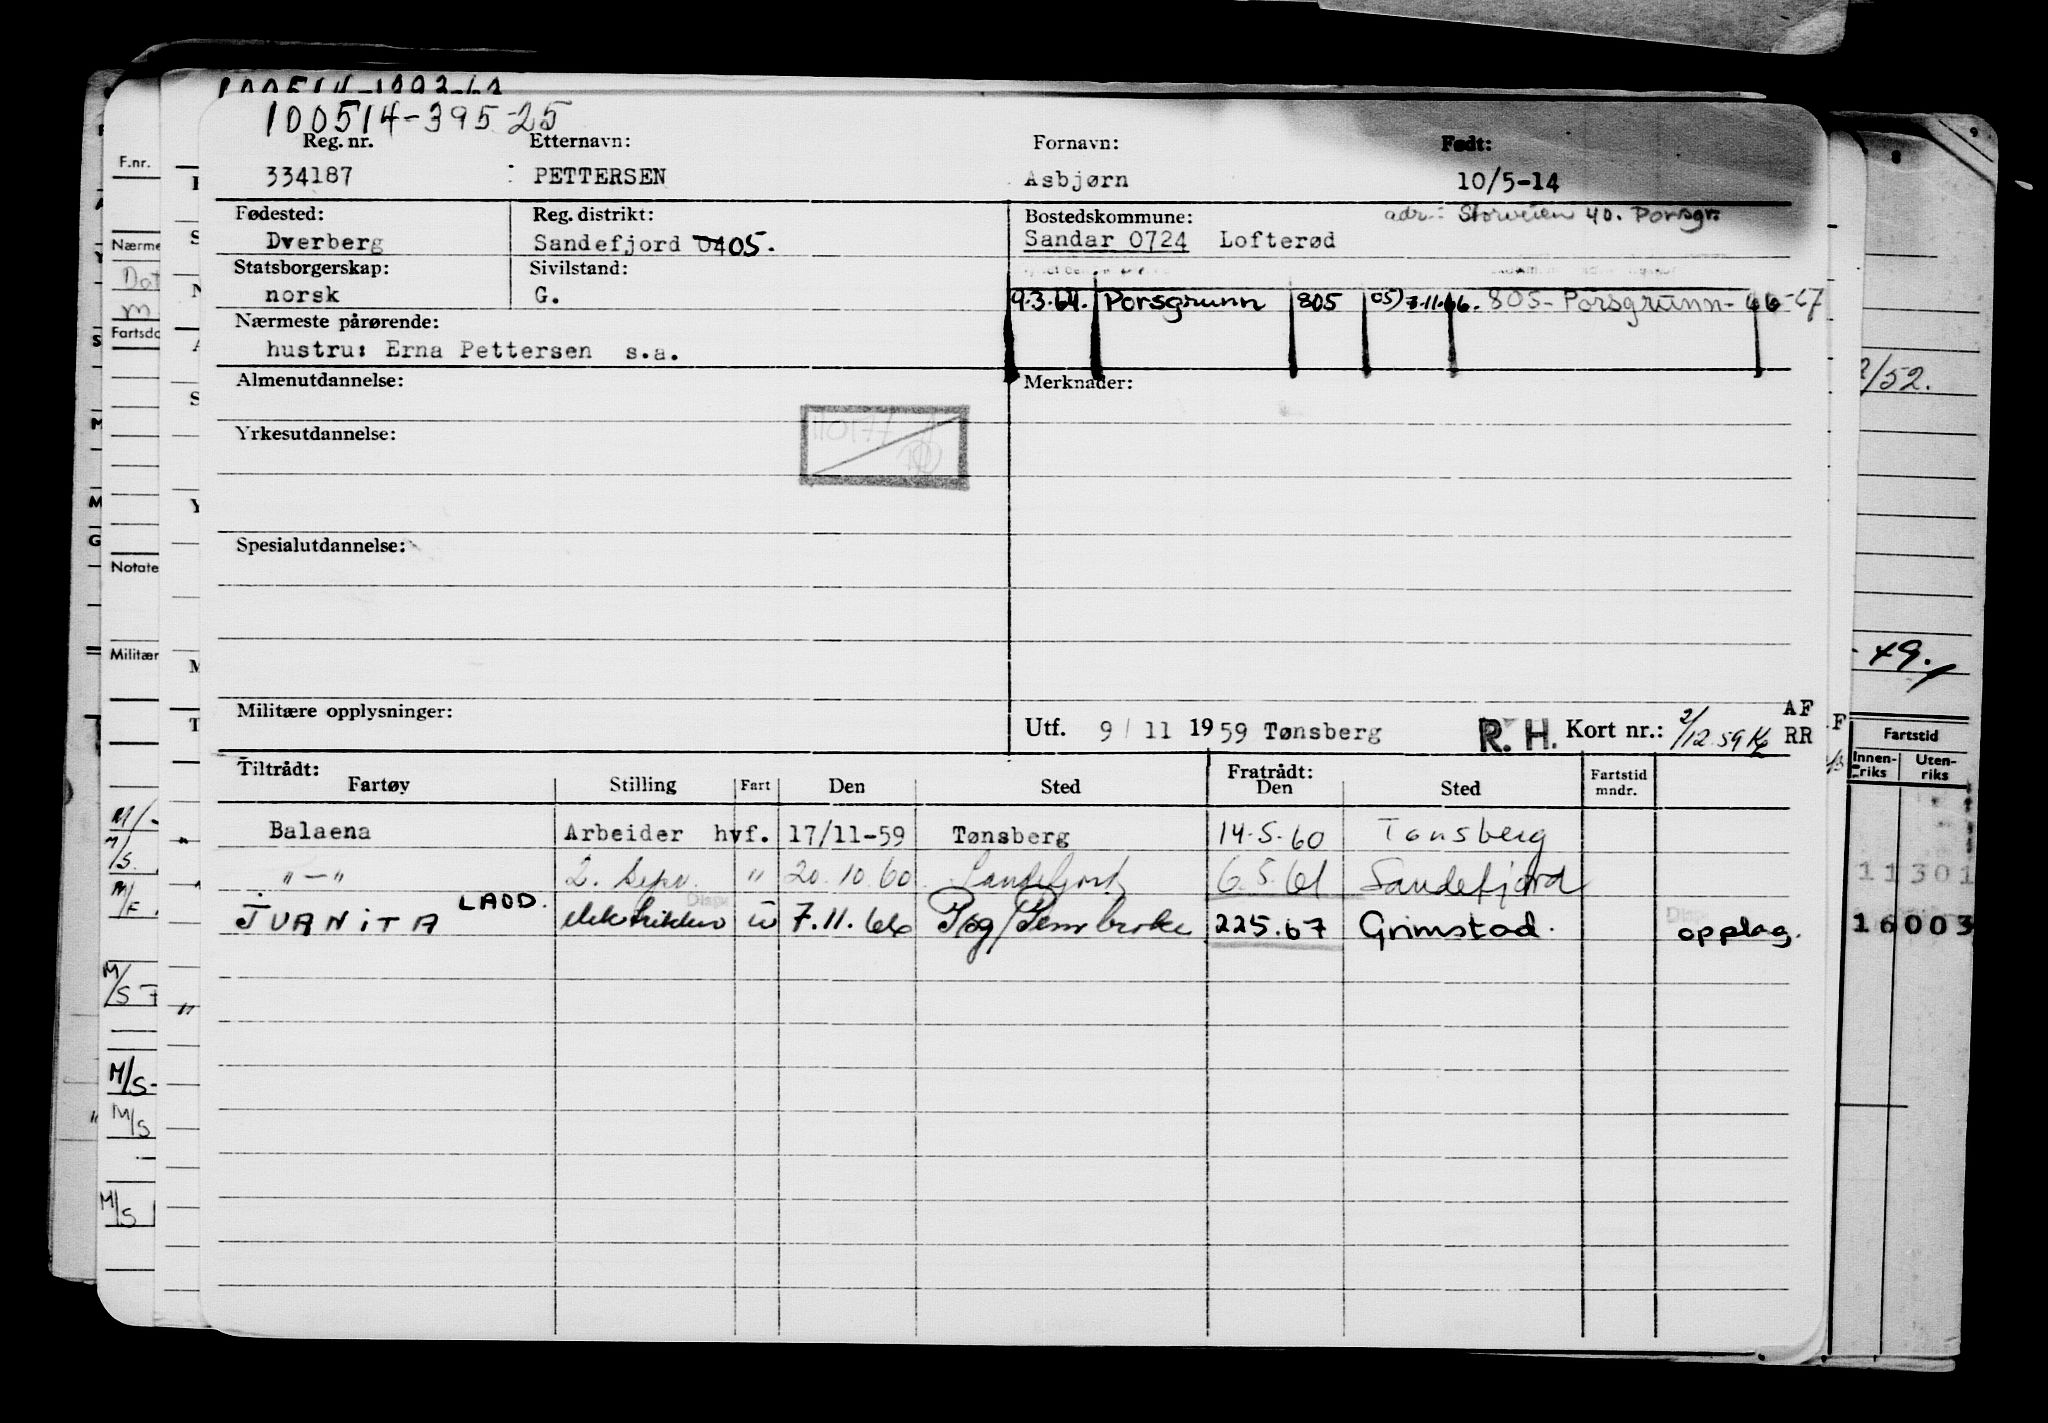 100514-395-25
Reg. nr. Etternavn: Fornavn: Født:
334187 PETTERSEN Asbjørn 10/5-14
Fødested: Reg. distrikt: Bostedskommune: adr: Storveien 40. Porsgr.
Dverberg Sandefjord 0405. Sandar 0724 Lofterød
Statsborgerskap: Sivilstand:
norsk G. 9.3.64. Porsgrunn 805 05) 7.11.66. 805- Porsgrunn- 66-67
Nærmeste pårørende:
hustru: Erna Pettersen s.a.
Almenutdannelse: Merknader:
Yrkesutdannelse:
Spesialutdannelse:
Militære opplysninger: Utf. 9/11 1959 Tønsberg R. H. Kort nr.: 2/12.59 AF
RR
Tiltrådt: Fratrådt:
Fartøy Stilling Fart Den Sted Den Sted Fartstid mndr.
Balaena Arbeider hvf. 17/11-59 Tønsberg 14.5.60 Tønsberg
"-" 2. " 20.10.60 Sandefjord 6.5.61 Sandefjord
JUANITA LAOD. elektriker u 7.11.66 Psg/Pembroke 225.67 Grimstad. opplag.
F.nr.
Nærme
Fartsdo
Notate
Militær
M/S
M/S
M/S
M/S
2/52.
-49.
Fartstid
Innen-
riks
Uten-
riks
11301
16003